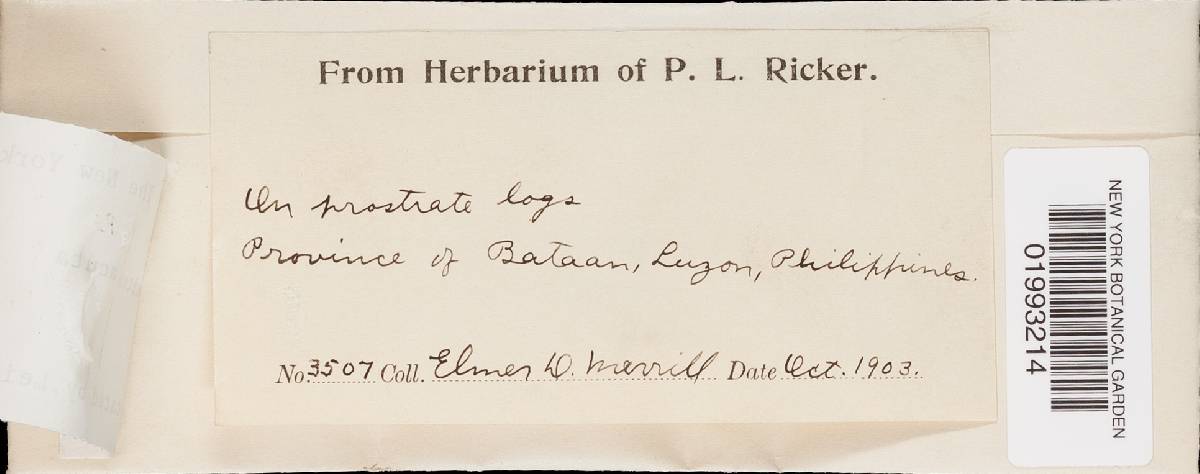 From Herbarium of P. L. Ricker.
On prostrate logs
Province of Bataan, Luzon, Philippines.
No. 3507 Coll. Elmer D. Merrill Date Oct. 1903.
NEW YORK BOTANICAL GARDEN
01993214